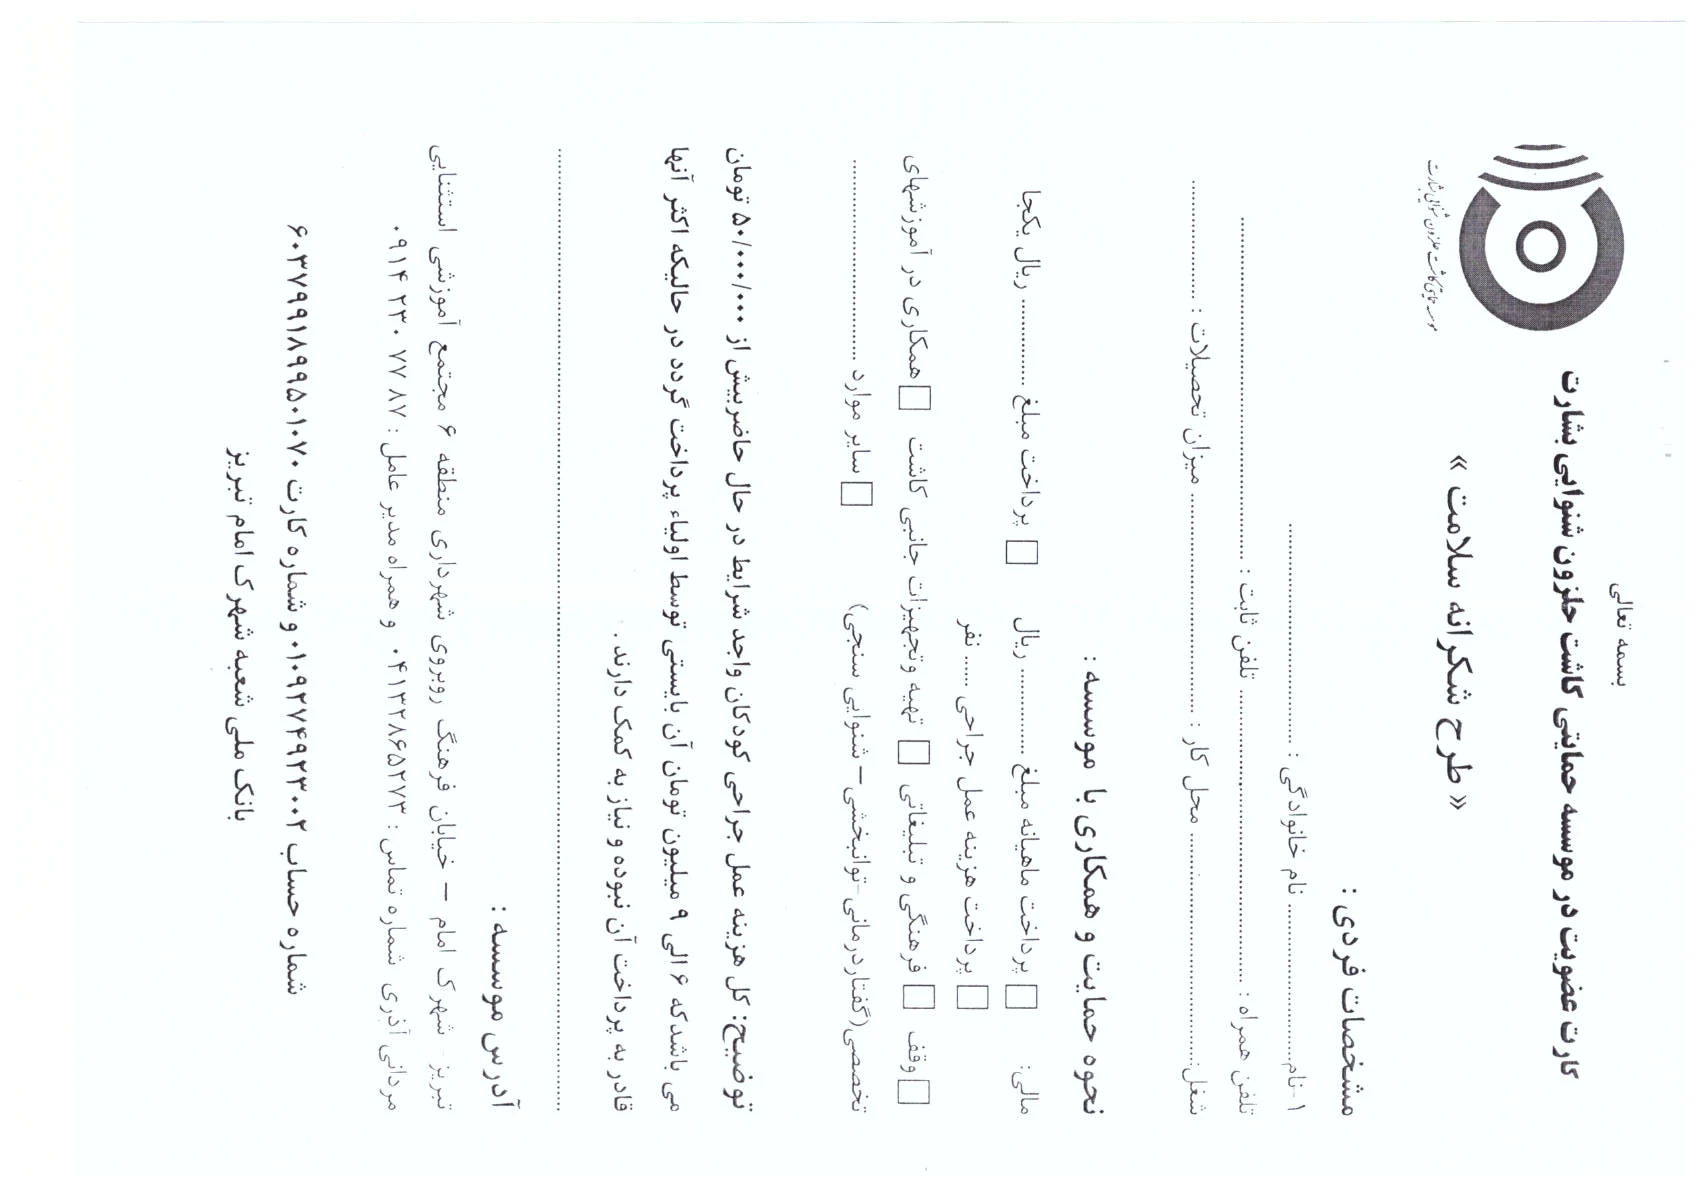 بسمه تعالی
کارت عضویت در موسسه حمایتی کاشت حلزون شنوایی بشارت
« طرح شکرانه سلامت »
موسسه حمایتی کاشت حلزون شنوایی بشارت
مشخصات فردی :
۱-نام........................ نام خانوادگی : ........................................
تلفن همراه : ........................................ تلفن ثابت : ........................................
شغل:........................................ محل کار : ........................................ میزان تحصیلات : ........................
نحوه حمایت و همکاری با موسسه :
مالی: □ پرداخت ماهیانه مبلغ ................ ریال □ پرداخت مبلغ ................ ریال یکجا
□ پرداخت هزینه عمل جراحی ..... نفر
□ وقف □ فرهنگی و تبلیغاتی □ تهیه وتجهیزات جانبی کاشت □ همکاری در آموزشهای
تخصصی(گفتاردرمانی -توانبخشی – شنوایی سنجی) □ سایر موارد ........................................
توضیح: کل هزینه عمل جراحی کودکان واجد شرایط در حال حاضربیش از ۵۰/۰۰۰/۰۰۰ تومان
می باشدکه ۶ الی ۹ میلیون تومان آن بایستی توسط اولیاء پرداخت گردد در حالیکه اکثر آنها
قادر به پرداخت آن نبوده و نیاز به کمک دارند.
................................................................................
آدرس موسسه :
تبریز - شهرک امام – خیابان فرهنگ روبروی شهرداری منطقه ۶ مجتمع آموزشی استثنایی
مردانی آذری شماره تماس: ۰۴۱۳۲۸۶۵۲۷۳ و همراه مدیر عامل : ۸۷ ۷۷ ۲۳۰ ۰۹۱۴
شماره حساب ۰۱۰۹۲۷۴۹۲۳۰۰۲ و شماره کارت ۶۰۳۷۹۹۱۸۹۹۵۰۱۰۷۰
بانک ملی شعبه شهرک امام تبریز